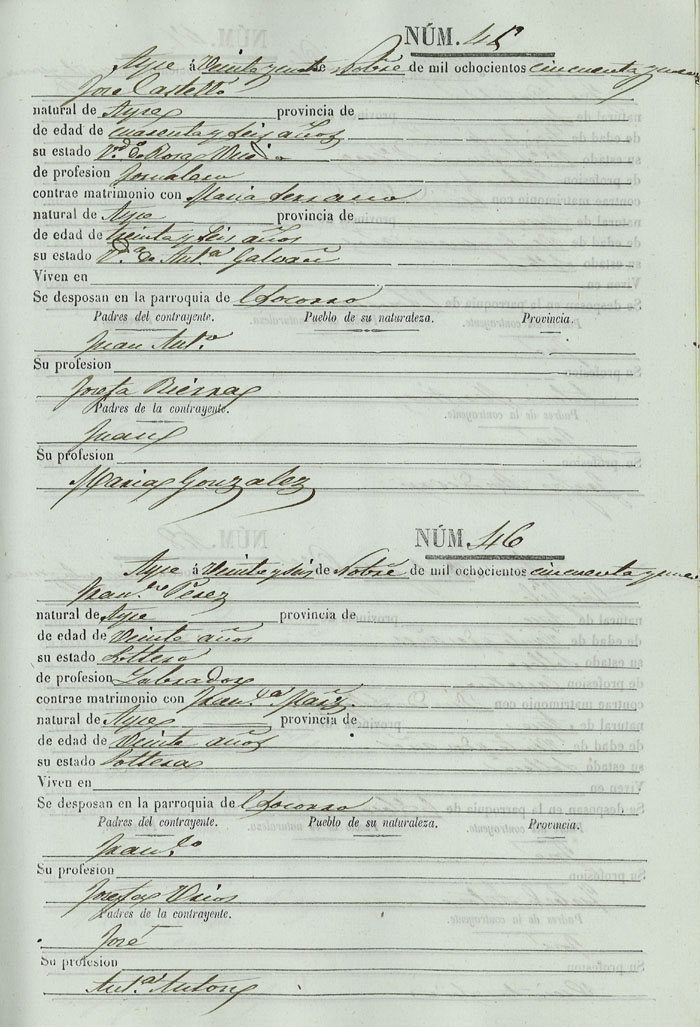 NÚM. 45
Aspe á Veinte y de Nobre de mil ochocientos cincuenta y
José Castelló
natural de Aspe provincia de
de edad de cuarenta y seis años
su estado V.do de Rosa
de profesion Jornalero
contrae matrimonio con Maria Serrano
natural de Aspe provincia de
de edad de treinta y seis años
su estado V.da de Ant.o Galvañ
Viven en
Se desposan en la parroquia de l Socorro
Padres del contrayente. Pueblo de su naturaleza. Provincia.
Juan Ant.o
Su profesion
Josefa
Padres de la contrayente.
Juan
Su profesion
Maria Gonzalez
NÚM. 46
Aspe á Veinte y seis de Nobre de mil ochocientos cincuenta y
Fran.co Perez
natural de Aspe provincia de
de edad de Veinte años
su estado Soltero
de profesion Labrador
contrae matrimonio con Fran.ca
natural de Aspe provincia de
de edad de Veinte años
su estado Soltera
Viven en
Se desposan en la parroquia de l Socorro
Padres del contrayente. Pueblo de su naturaleza. Provincia.
Fran.co
Su profesion
Josefa
Padres de la contrayente.
José
Su profesion
Ant.a Anton